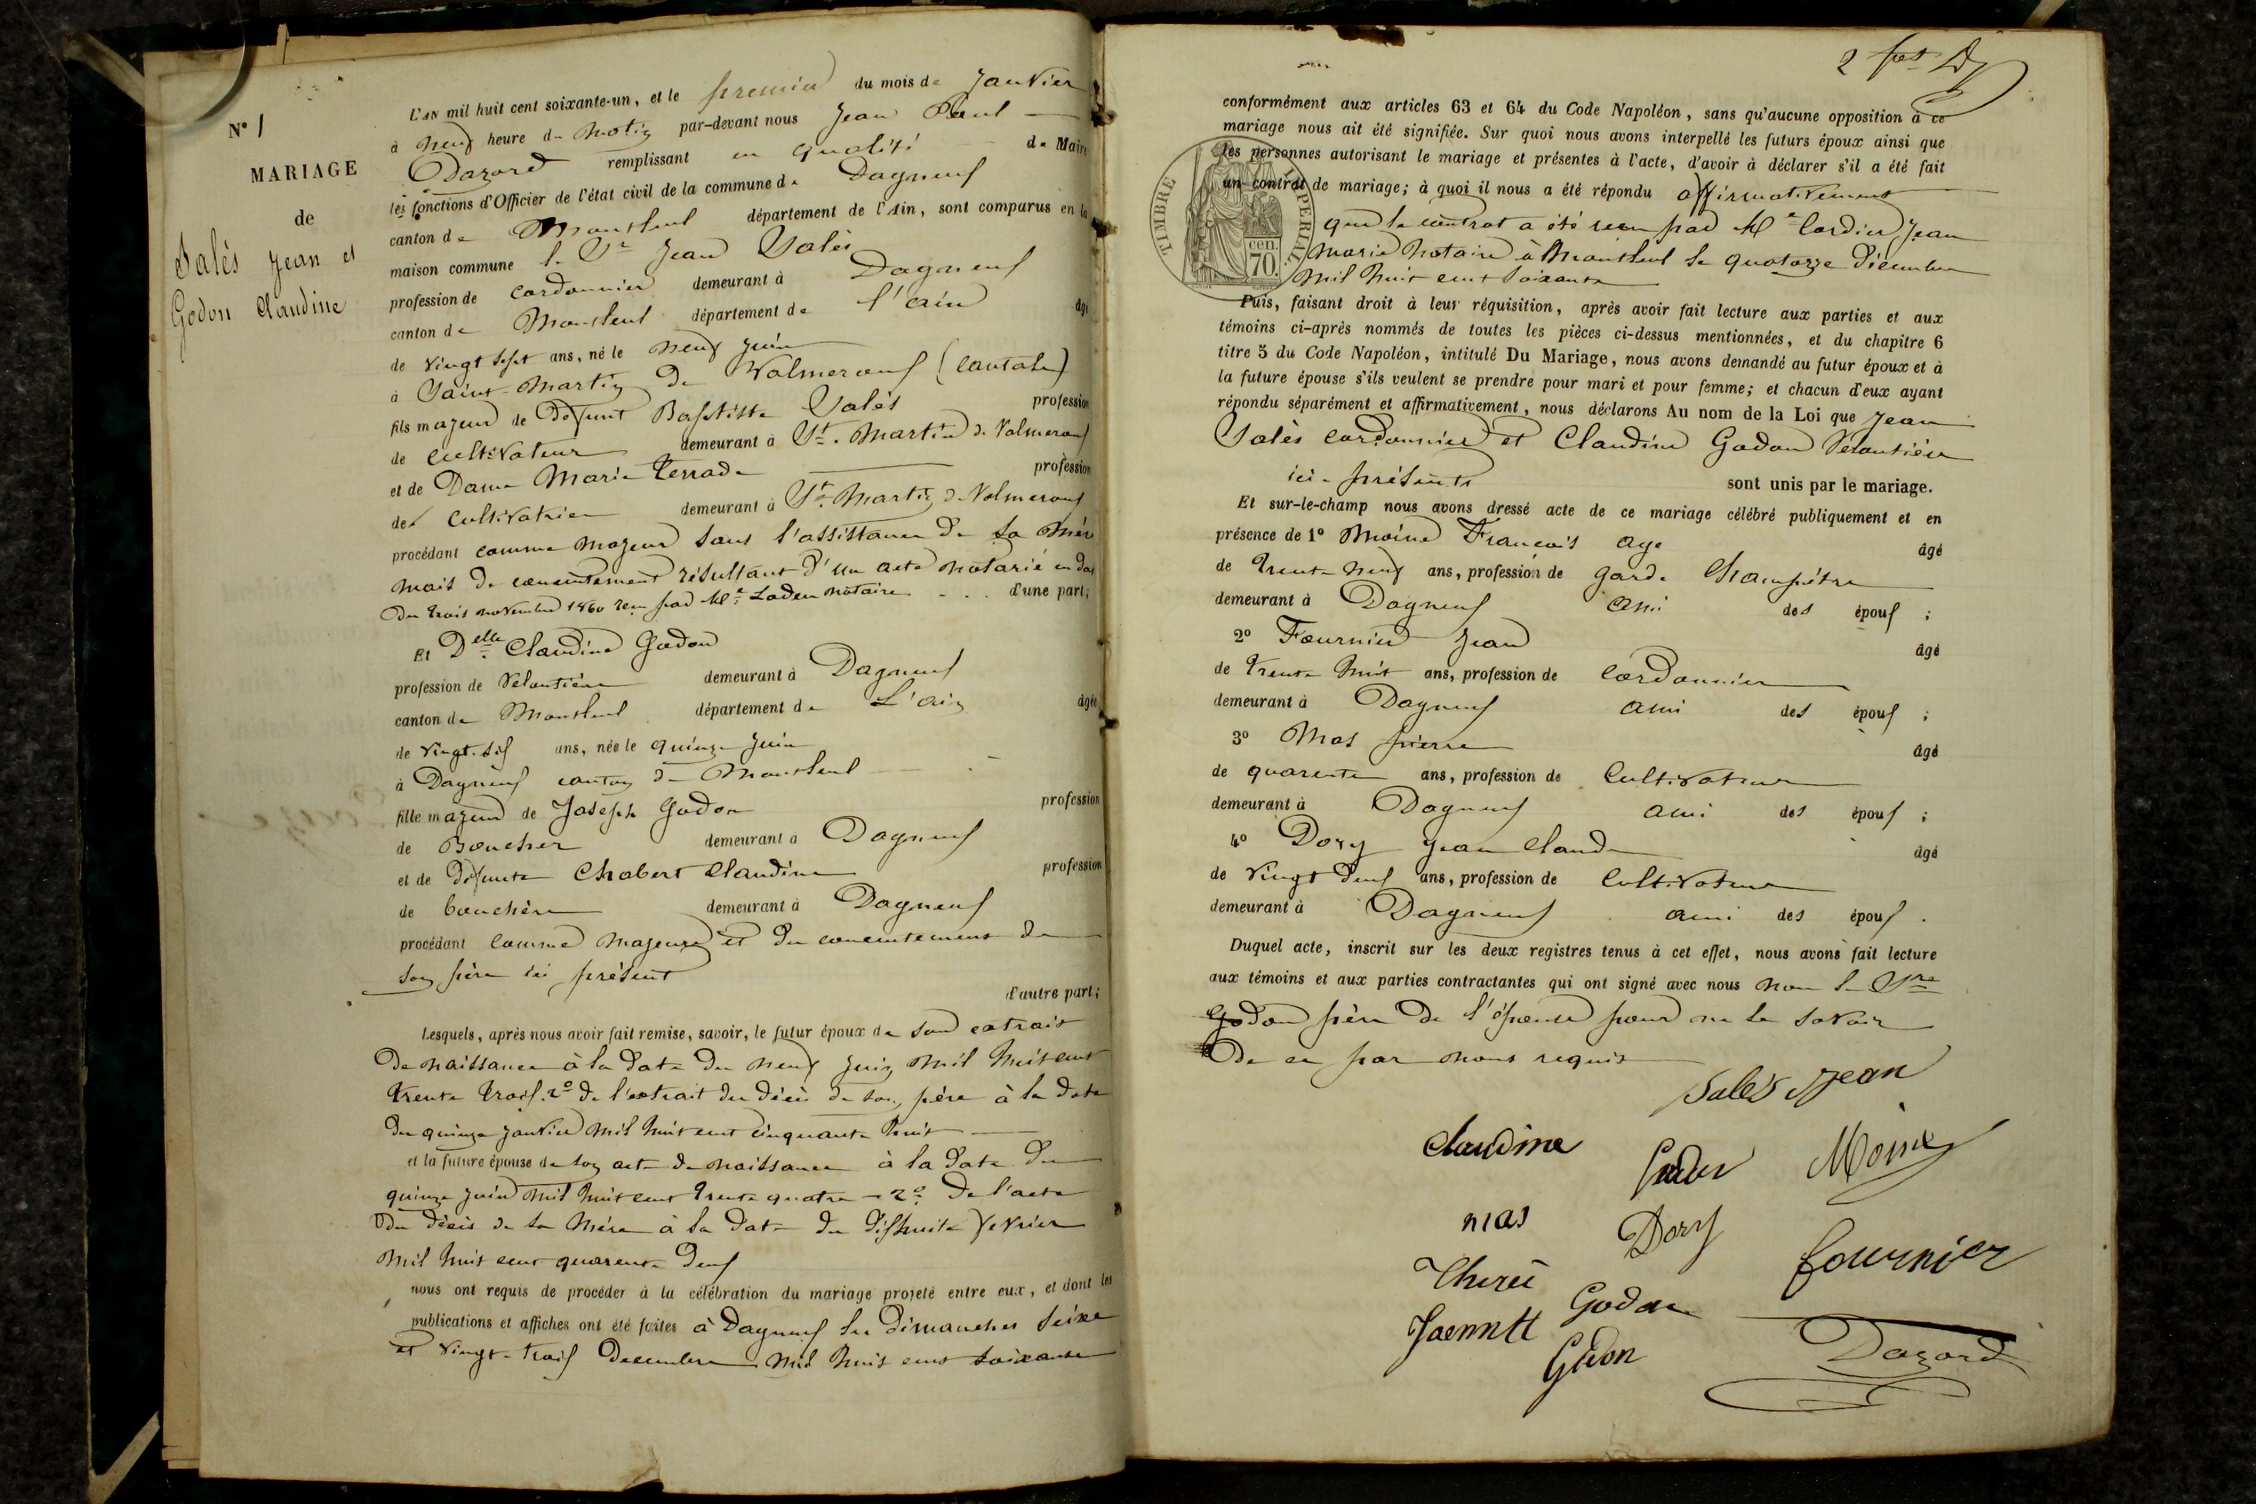 N° 1
MARIAGE
de
Salès Jean et
Godon Claudine
L'AN mil huit cent soixante-un, et le premier du mois de Janvier
à neuf heure du matin par-devant nous Jean Paul
Dazord remplissant en qualité de Maire
les fonctions d'Officier de l'état civil de la commune de Dagneux
canton de Montluel département de l'Ain, sont comparus en la
maison commune le Sr Jean Salès
profession de cordonnier demeurant à Dagneux
canton de Montluel département de l'ain âgé
de vingt sept ans, né le neuf juin
à Saint-Martin de Valmeroux (Cantale)
fils majeur de défunt Baptiste Salès profession
de cultivateur demeurant à St. Martin de Valmeroux
et de Dame Marie Terrade profession
de cultivatrice demeurant à St. Martin de Valmeroux
procédant comme majeur sans l'assistance de sa mère
mais de consentement résultant d'un acte notarié en date
du trois novembre 1860 reçu par Me notaire d'une part;
Et Delle Claudine Godon
profession de veloutière demeurant à Dagneux
canton de Montluel département de L'ain âgée
de vingt-six ans, née le quinze juin
à Dagneux canton de Montluel
fille majeur de Joseph Godon profession
de Boucher demeurant à Dagneux
et de défunte Chabert Claudine profession
de bouchère demeurant à Dagneux
procédant comme majeure et du consentement de
son père ici présent
d'autre part;
Lesquels, après nous avoir fait remise, savoir, le futur époux de son extrait
de naissance à la date du neuf juin mil huit cent
trente trois. 2° de l'extrait du décès de son père à la date
du quinze janvier mil huit cent cinquante huit
et la future épouse de son acte de naissance à la date du
quinze juin mil huit cent trente quatre - 2° de l'acte
du décès de sa mère à la date du dixhuite fevrier
mil huit cent quarente deux
nous ont requis de procéder à la célébration du mariage projeté entre eux, et dont les
publications et affiches ont été faites à Dagneux les dimanches seize
et vingt-trois decembre mil huit cent soixante
2
conformément aux articles 63 et 64 du Code Napoléon, sans qu'aucune opposition à ce
mariage nous ait été signifiée. Sur quoi nous avons interpellé les futurs époux ainsi que
les personnes autorisant le mariage et présentes à l'acte, d'avoir à déclarer s'il a été fait
un contrat de mariage; à quoi il nous a été répondu affirmativement
TIMBRE IMPERIAL
cen.
70.
que le contrat a été reçu par Me Cordier Jean
Marie notaire à Montluel le quatorze décembre
mil huit cent soixante
Puis, faisant droit à leur réquisition, après avoir fait lecture aux parties et aux
témoins ci-après nommés de toutes les pièces ci-dessus mentionnées, et du chapitre 6
titre 5 du Code Napoléon, intitulé Du Mariage, nous avons demandé au futur époux et à
la future épouse s'ils veulent se prendre pour mari et pour femme; et chacun d'eux ayant
répondu séparément et affirmativement, nous déclarons Au nom de la Loi que Jean
Salès cordonnier et Claudine Godon veloutière
ici-présents sont unis par le mariage.
Et sur-le-champ nous avons dressé acte de ce mariage célébré publiquement et en
présence de 1° Moine François age âgé
de trente neuf ans, profession de garde champêtre
demeurant à Dagneux ami des époux ;
2° Fournier Jean âgé
de trente huit ans, profession de cordonnier
demeurant à Dagneux ami des époux ;
3° Mas pierre âgé
de quarente ans, profession de Cultivateur
demeurant à Dagneux ami des époux ;
4° Dory Jean Claude âgé
de vingt deux ans, profession de Cultivateur
demeurant à Dagneux ami des époux .
Duquel acte, inscrit sur les deux registres tenus à cet effet, nous avons fait lecture
aux témoins et aux parties contractantes qui ont signé avec nous non le Sre
Godon père de l'épouse pour ne le savoir
de ce par nous requis
Salès Jean
Claudine Godon Moine
mas Dory fournier
Godon
Godon Dazord